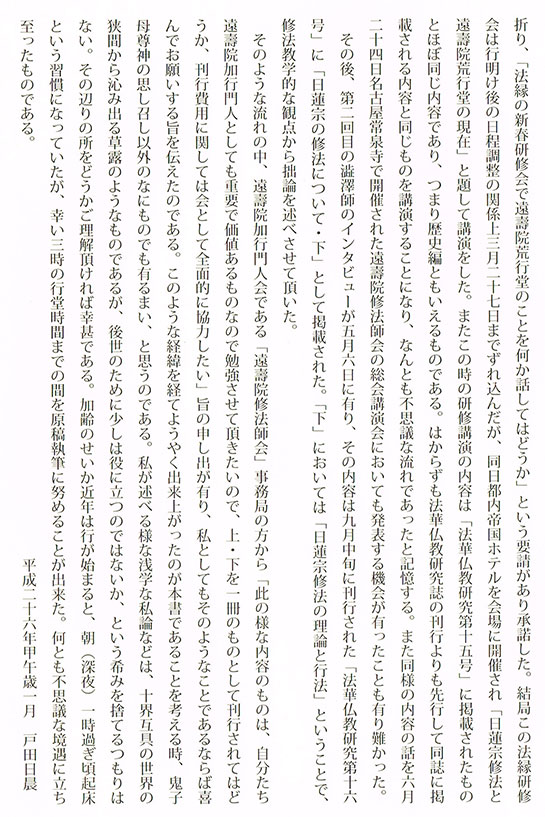 折り、「法縁の新春研修会で遠壽院荒行堂のことを何か話してはどうか」という要請があり承諾した。結局この法縁研修
会は行明け後の日程調整の関係上三月二十七日までずれ込んだが、同日都内帝国ホテルを会場に開催され「日蓮宗修法と
遠壽院荒行堂の現在」と題して講演をした。またこの時の研修講演の内容は「法華仏教研究第十五号」に掲載されたもの
とほぼ同じ内容であり、つまり歴史編ともいえるものである。はからずも法華仏教研究誌の刊行よりも先行して同誌に掲
載される内容と同じものを講演することになり、なんとも不思議な流れであったと記憶する。また同様の内容の話を六月
二十四日名古屋常泉寺で開催された遠壽院修法師会の総会講演会においても発表する機会が有ったことも有り難かった。
その後、第二回目の澁澤師のインタビューが五月六日に有り、その内容は九月中旬に刊行された「法華仏教研究第十六
号」に「日蓮宗の修法について・下」として掲載された。「下」においては「日蓮宗修法の理論と行法」ということで、
修法教学的な観点から拙論を述べさせて頂いた。
そのような流れの中、遠壽院加行門人会である「遠壽院修法師会」事務局の方から「此の様な内容のものは、自分たち
遠壽院加行門人としても重要で価値あるものなので勉強させて頂きたいので、上・下を一冊のものとして刊行されてはど
うか、刊行費用に関しては会として全面的に協力したい」旨の申し出が有り、私としてもそのようなことであるならば喜
んでお願いする旨を伝えたのである。このような経緯を経てようやく出来上がったのが本書であることを考える時、鬼子
母尊神の思し召し以外のなにものでも有るまい、と思うのである。私が述べる様な浅学な私論などは、十界互具の世界の
狭間から沁み出る草露のようなものであるが、後世のために少しは役に立つのではないか、という希みを捨てるつもりは
ない。その辺りの所をどうかご理解頂ければ幸甚である。加齢のせいか近年は行が始まると、朝（深夜）一時過ぎ頃起床
という習慣になっていたが、幸い三時の行堂時間までの間を原稿執筆に努めることが出来た。何とも不思議な境遇に立ち
至ったものである。
平成二十六年甲午歳一月　戸田日晨